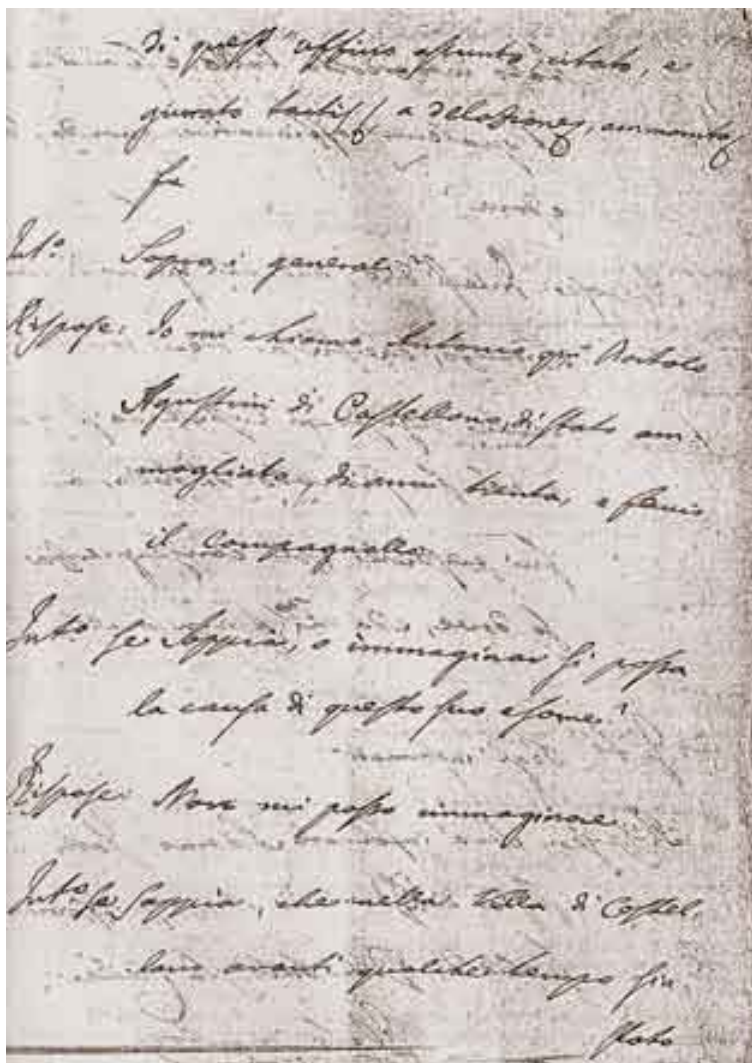 di quest' uffizio assunto, citato, e
giurato tactis a delazione, ammonito
fu
Int.º Sopra i generali
Rispose: Io mi chiamo Antonio q.m Bortolo
Agustini di Castellano, di stato am=
mogliato, di anni trenta, e faccio
il campagnollo
Int.º se sappia, o immaginar si possa
la causa di questo suo esame?
Rispose: Non mi posso immaginare
Int.º se sappia, che nella Villa di Castel=
lano avanti qualche tempo sia
stato